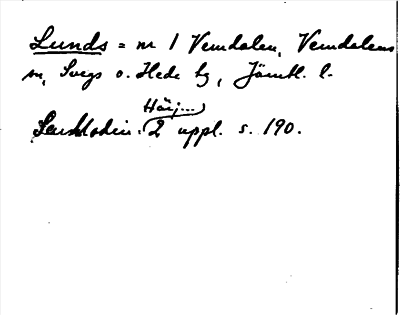 Lunds = nr 1 Vemdalen, Vemdalens
sn, Svegs o. Hede tg, Jämtl. l.
Härj...
2 uppl. s. 190.